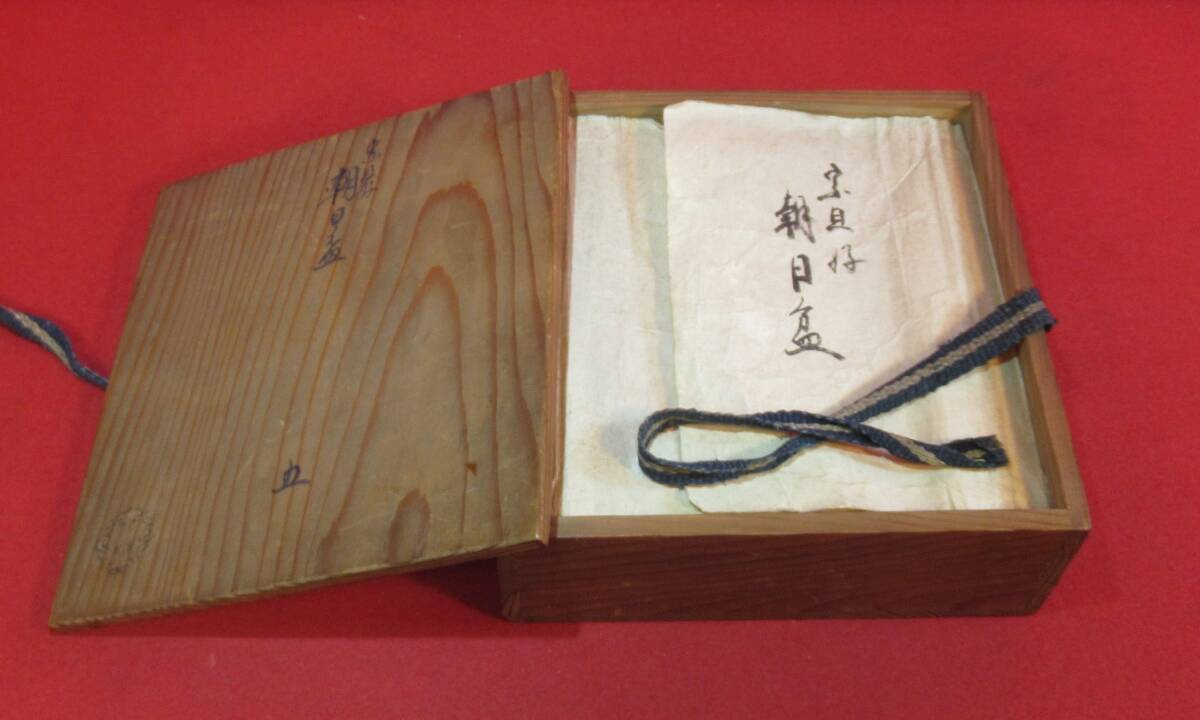 宗旦好
朝日盆
宗旦好
朝日盆
五